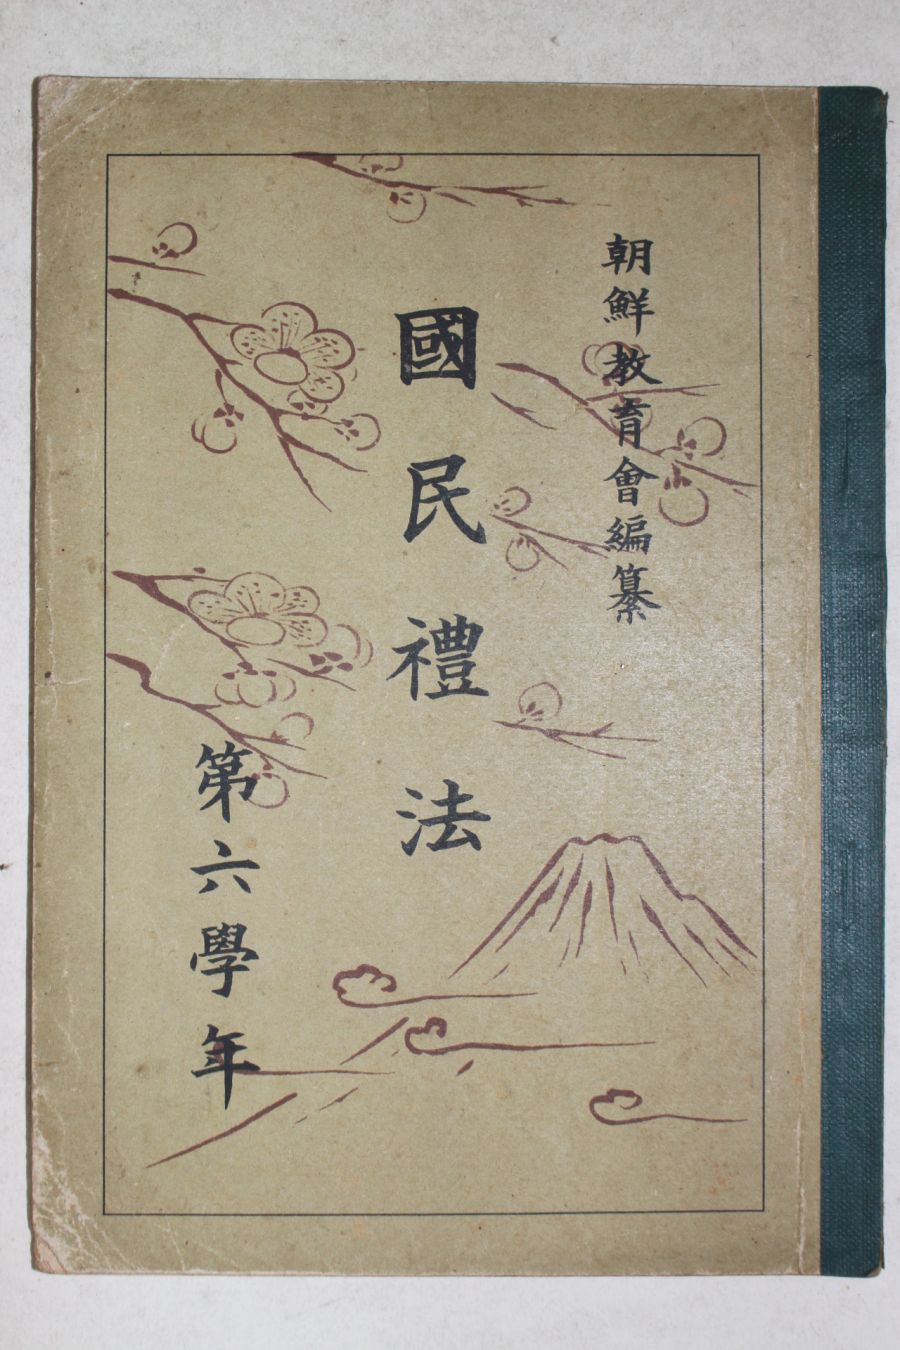 朝鮮教育會編纂
國民禮法
第六學年